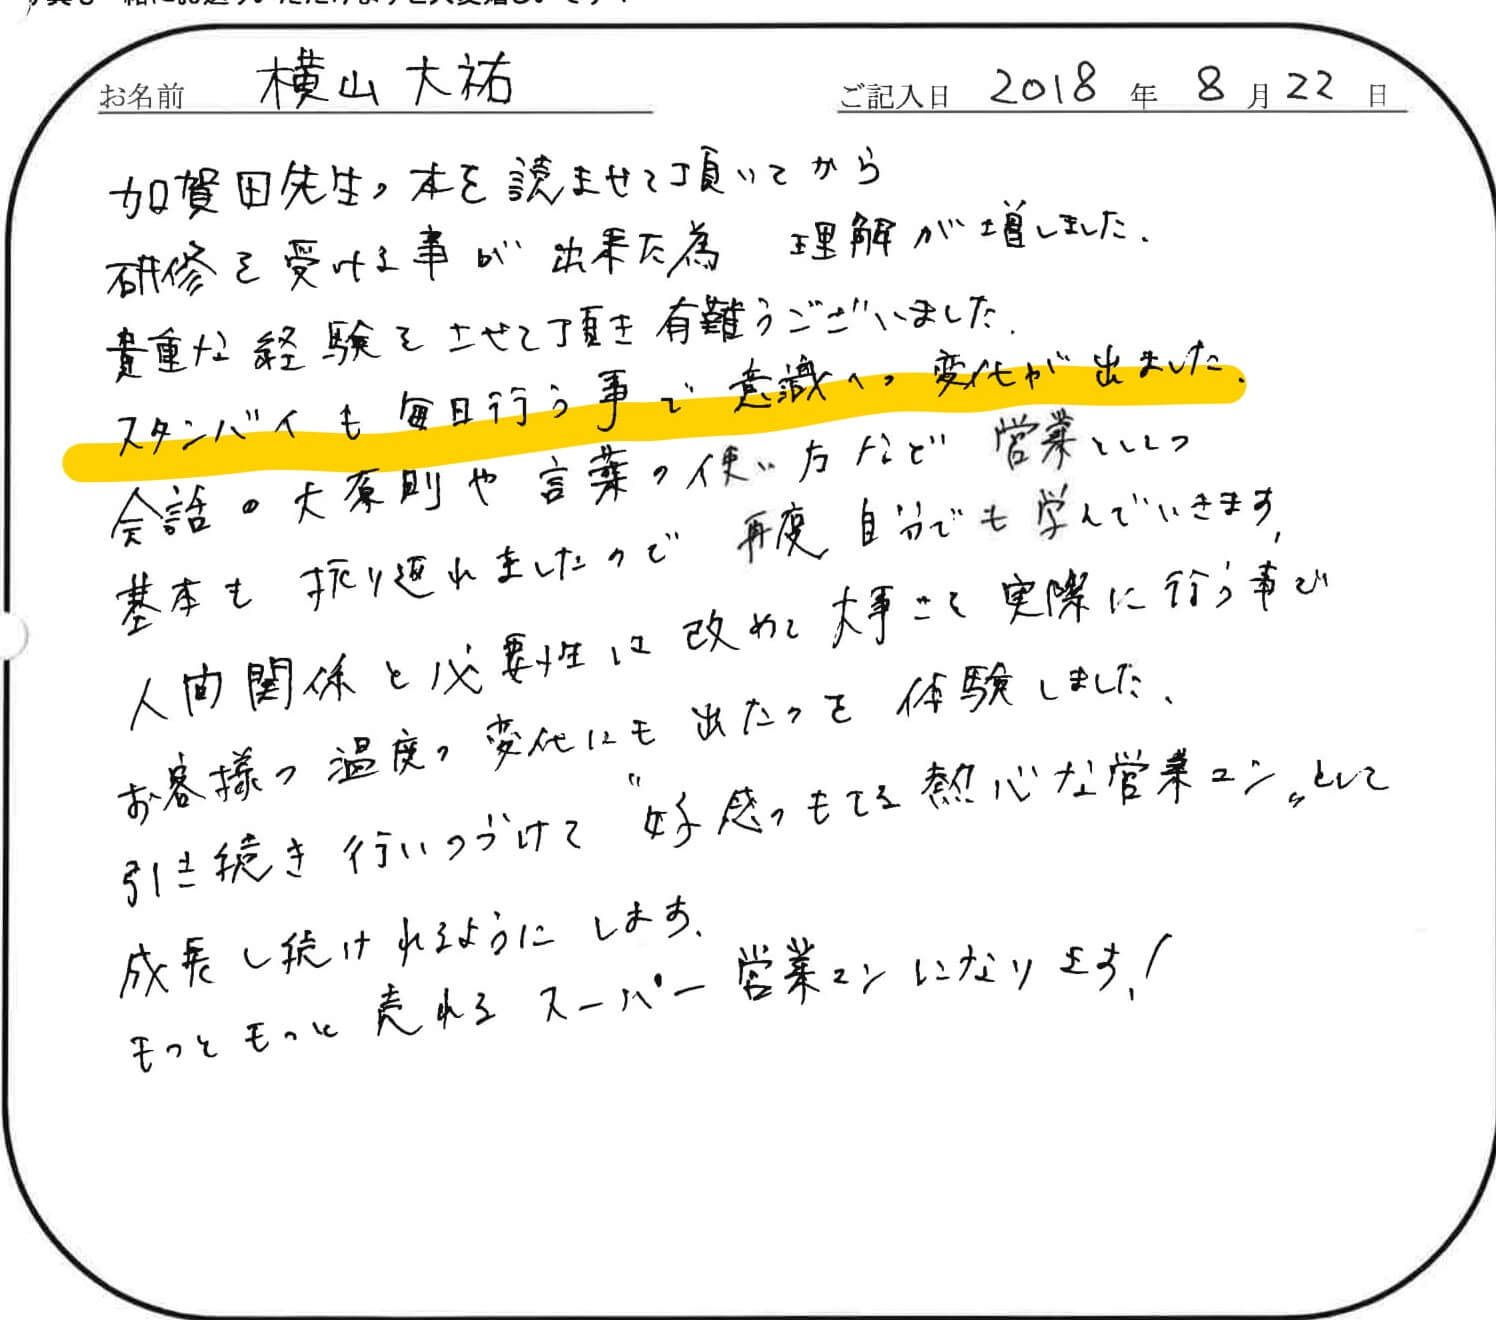 お名前 横山 大祐 ご記入日 2018 年 8 月 22 日
加賀田先生の本を読ませて頂いてから
研修を受ける事が出来た為 理解が増しました.
貴重な経験をさせて頂き有難うございました.
スタンバイも毎日行う事で意識への変化が出ました.
会話の大原則や言葉の使い方など 営業としての
基本も振り返れましたので 再度、自分でも学んでいきます.
人間関係と必要性は改めて大事さを実際に行う事で
お客様の温度の変化にも出たのを体験しました.
引き続き行いつづけて“好感のもてる熱心な営業マン„として
成長し続けれるようにします.
もっともっと売れるスーパー営業マンになります!